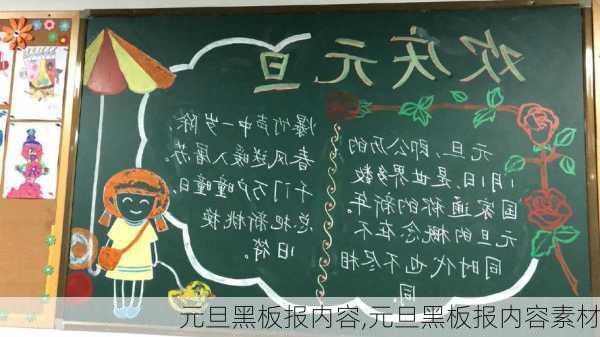 欢庆元旦
元旦,即公历的
1月1日,是世界多数
国家通称的新年。
元旦的概念在不
同时代也不尽相
同
爆竹声中一岁除,
春风送暖入屠苏。
千门万户曈曈日,
总把新桃换
旧符。
元旦黑板报内容,元旦黑板报内容素材